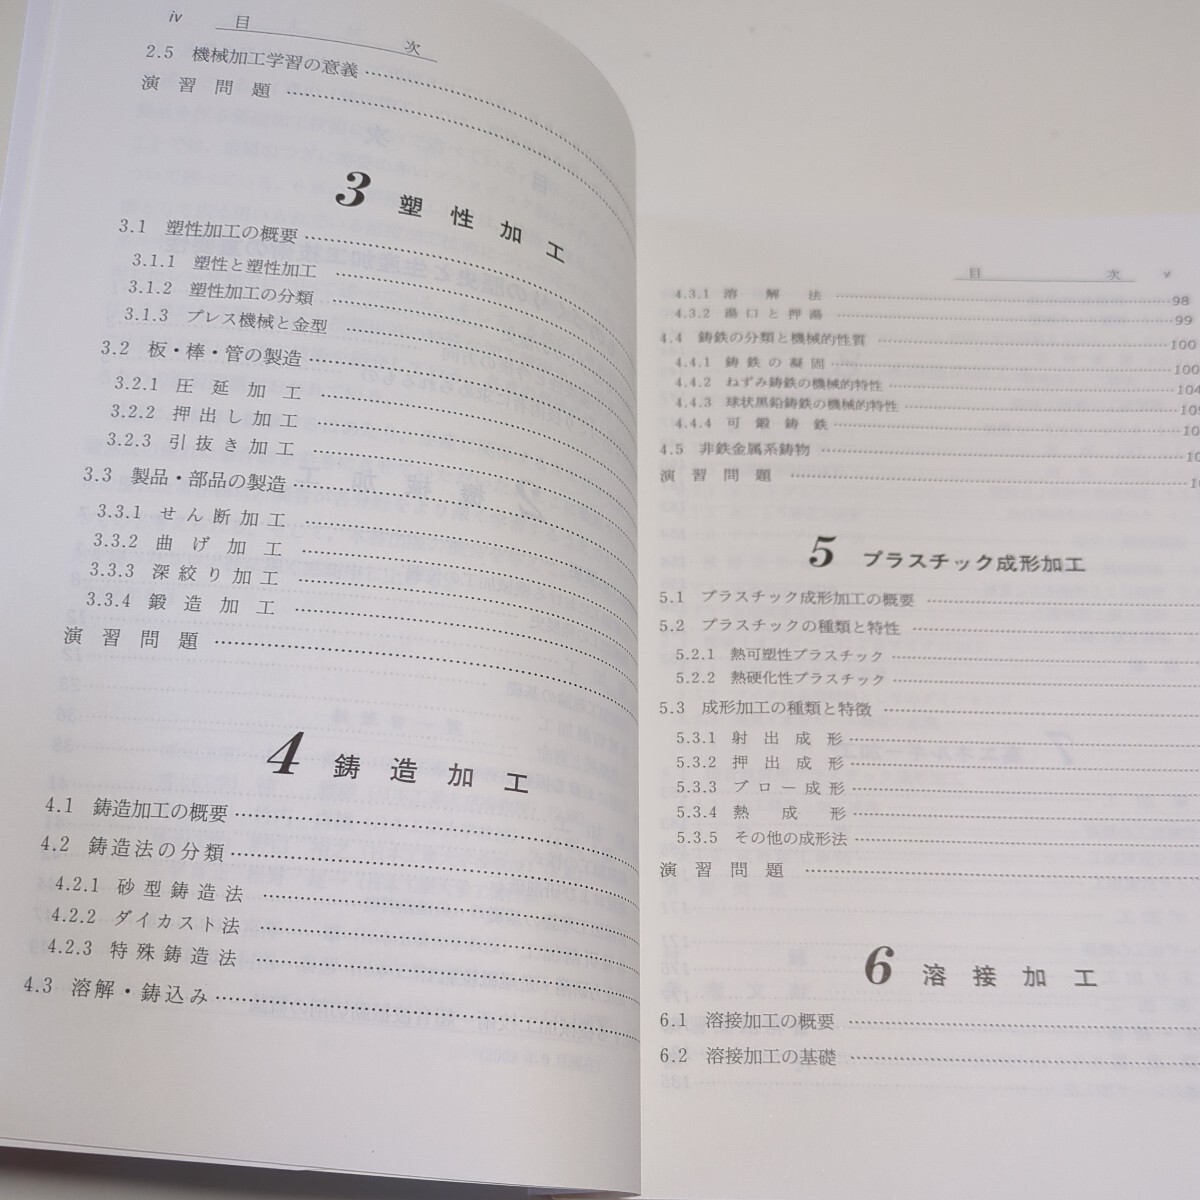 iv 目 次
2.5 機械加工学習の意義
演習問題
3 塑性加工
3.1 塑性加工の概要
3.1.1 塑性と塑性加工
3.1.2 塑性加工の分類
3.1.3 プレス機械と金型
3.2 板・棒・管の製造
3.2.1 圧延加工
3.2.2 押出し加工
3.2.3 引抜き加工
3.3 製品・部品の製造
3.3.1 せん断加工
3.3.2 曲げ加工
3.3.3 深絞り加工
3.3.4 鍛造加工
演習問題
4 鋳造加工
4.1 鋳造加工の概要
4.2 鋳造法の分類
4.2.1 砂型鋳造法
4.2.2 ダイカスト法
4.2.3 特殊鋳造法
4.3 溶解・鋳込み
目 次 v
4.3.1 溶解法 98
4.3.2 湯口と押湯 99
4.4 鋳鉄の分類と機械的性質 100
4.4.1 鋳鉄の凝固 100
4.4.2 ねずみ鋳鉄の機械的特性 104
4.4.3 球状黒鉛鋳鉄の機械的特性
4.4.4 可鍛鋳鉄
4.5 非鉄金属系鋳物
演習問題
5 プラスチック成形加工
5.1 プラスチック成形加工の概要
5.2 プラスチックの種類と特性
5.2.1 熱可塑性プラスチック
5.2.2 熱硬化性プラスチック
5.3 成形加工の種類と特徴
5.3.1 射出成形
5.3.2 押出成形
5.3.3 ブロー成形
5.3.4 熱成形
5.3.5 その他の成形法
演習問題
6 溶接加工
6.1 溶接加工の概要
6.2 溶接加工の基礎